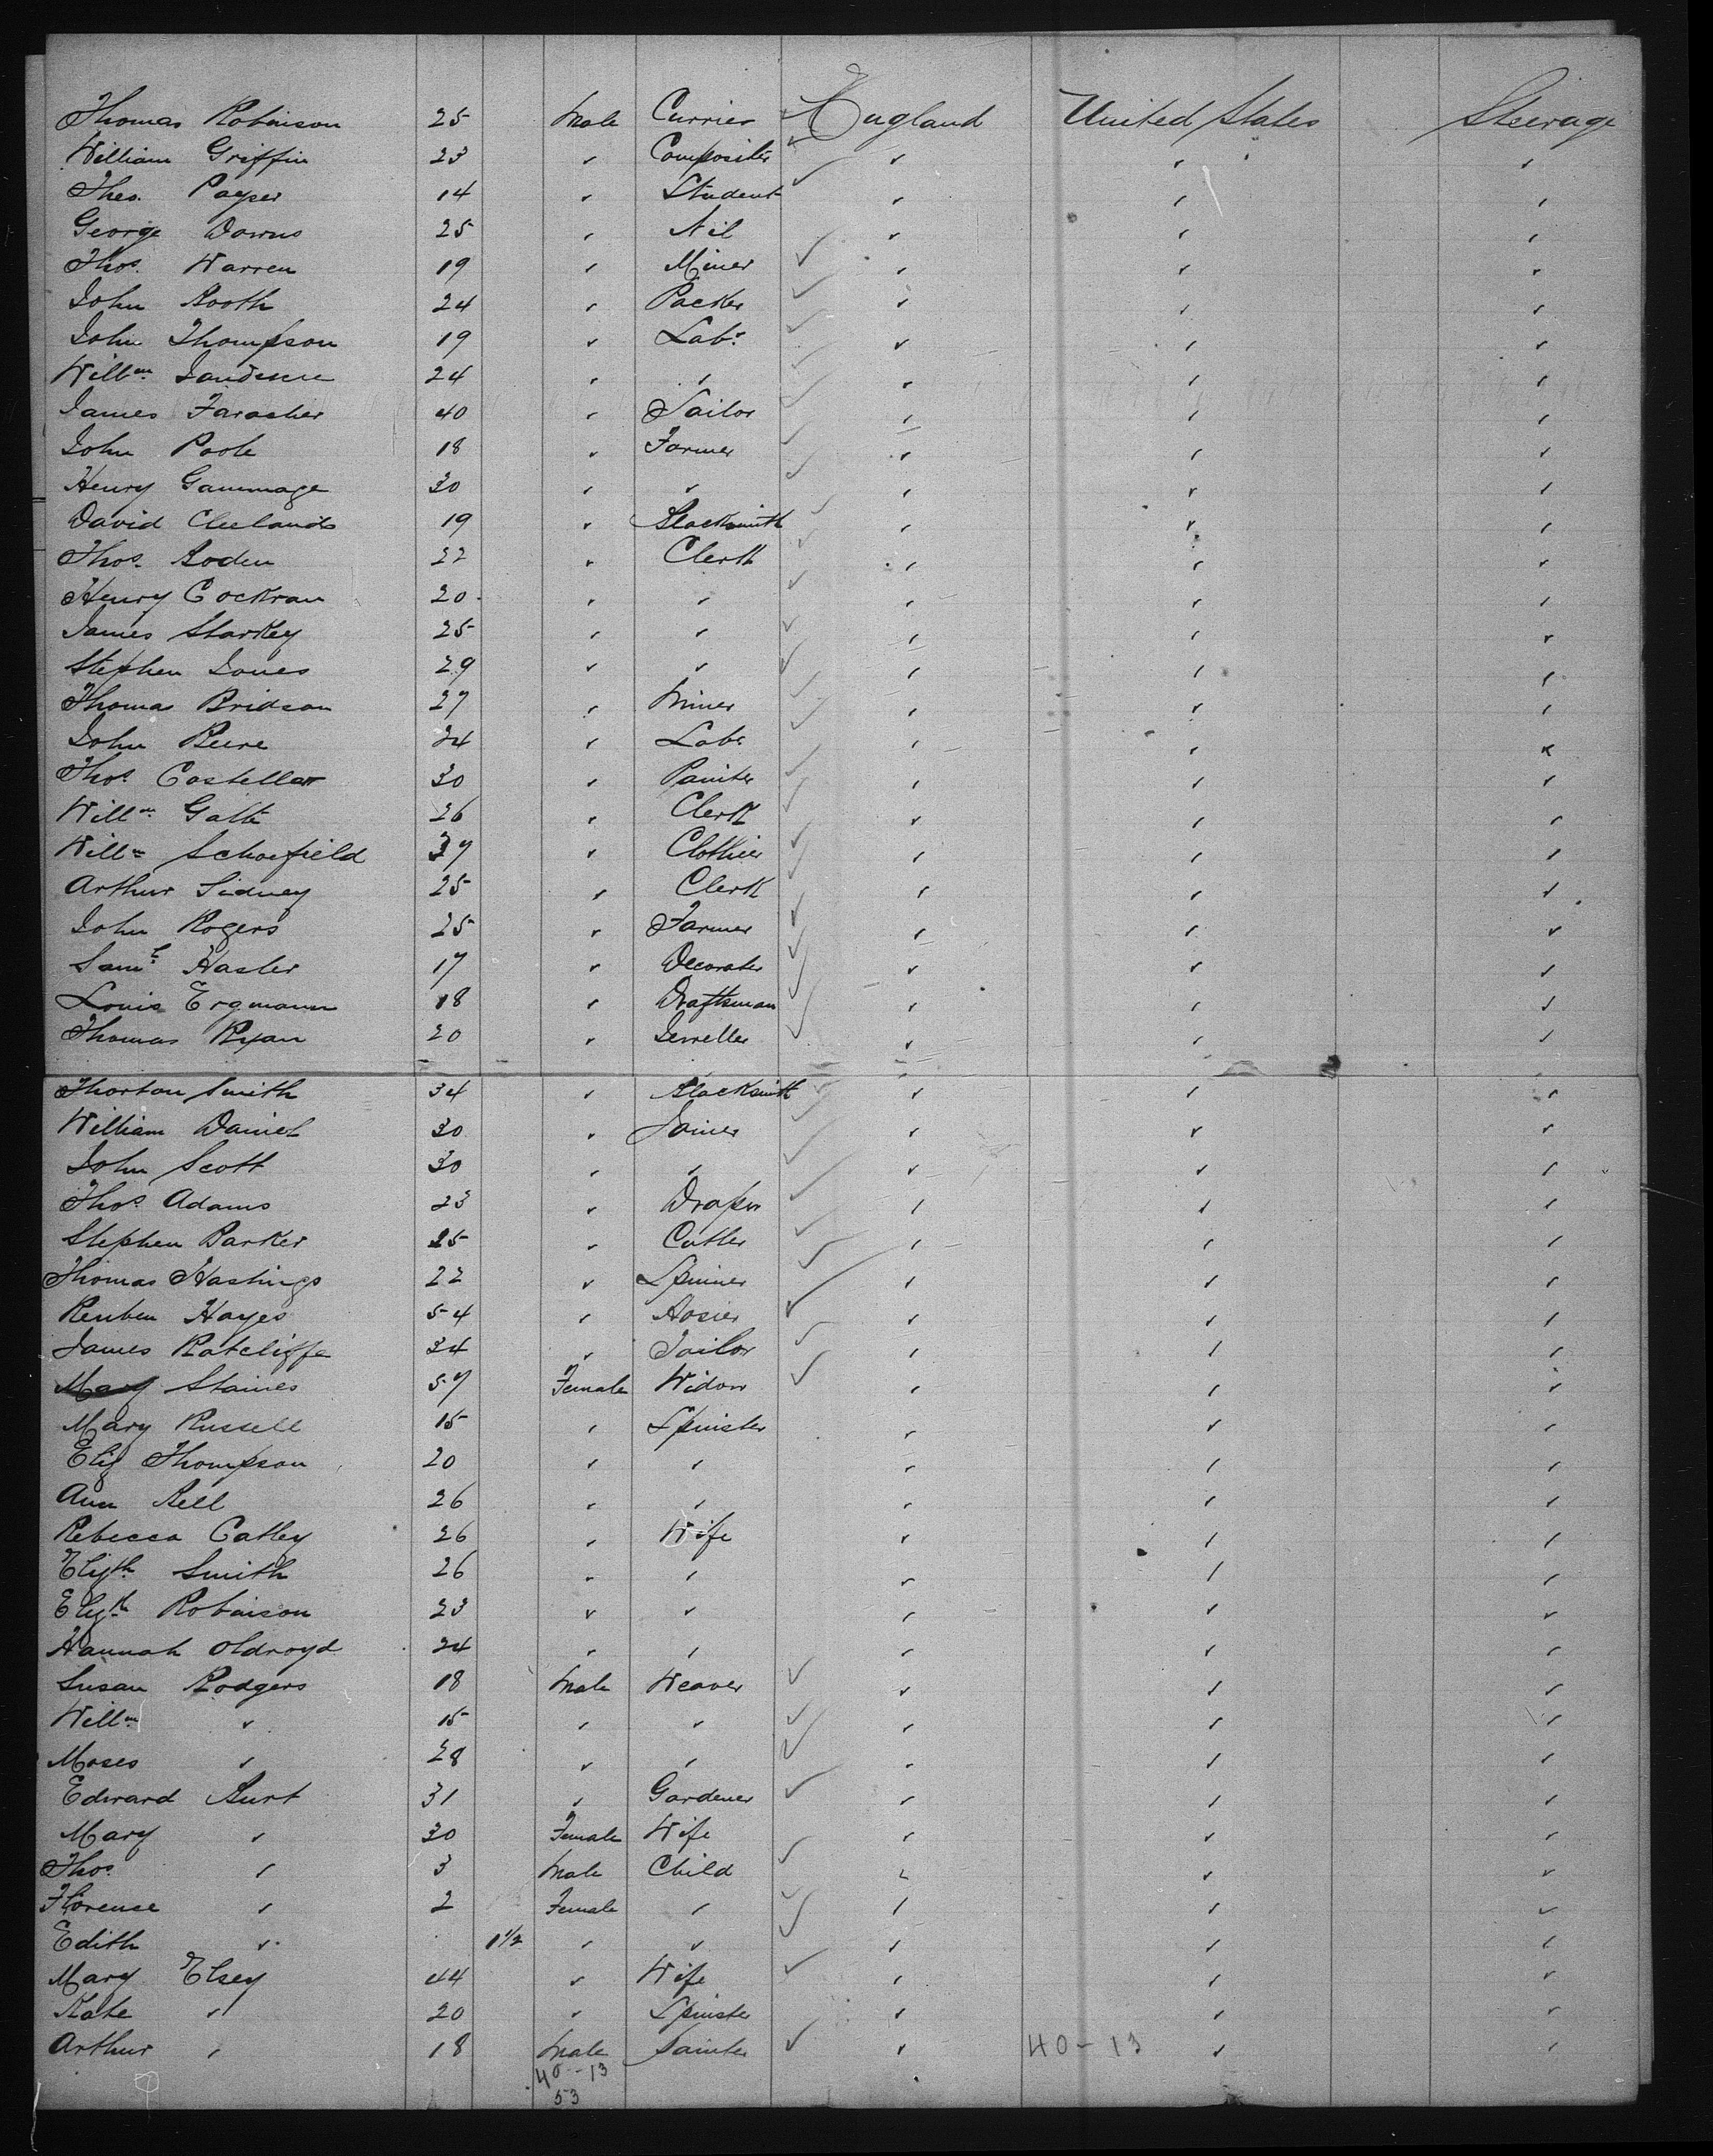 Thomas Robinson 25 Male Currier England United States Steerage
William Griffin 23 " Compositer " " "
Theo. Payser 14 " Student " " "
George Downs 25 " Nil " " "
Thos. Warren 19 " Miner " " "
John Booth 24 " Packer " " "
John Thompson 19 " Labr " " "
Willm 24 " " " " "
James 40 " Tailor " " "
John Poole 18 " Farmer " " "
Henry Gammage 30 " " " " "
David Cleelands 19 " Blacksmith " " "
Thos. Boden 22 " Clerk " " "
Henry Cockran 20 " " " " "
James Starkey 25 " " " " "
Stephen Jones 29 " " " " "
Thomas Bridson 27 " Miner " " "
John 24 " Labr " " "
Thos. 30 " Painter " " "
Willm 26 " Clerk " " "
Willm Schoefield 37 " Clothier " " "
Arthur Sidney 25 " Clerk " " "
John Rogers 25 " Farmer " " "
Saml Hasler 17 " Decorater " " "
Louis Ergmann 18 " Draftsman " " "
Thomas Ryan 20 " Jeweller " " "
Thorton Smith 34 " Blacksmith " " "
William Daniel 30 " Joiner " " "
John Scott 30 " " " " "
Thos. Adams 23 " Draper " " "
Stephen Barker 25 " Cutler " " "
Thomas Hastings 22 " Spinner " " "
Reuben Hayes 54 " Hosier " " "
James Ratcliffe 34 " Tailor " " "
Mary Staines 57 Female Widow " " "
Mary Russell 15 " Spinster " " "
Eliz Thompson 20 " " " " "
Ann Bell 26 " " " " "
Rebecca Catley 26 " Wife " " "
Elizth Smith 26 " " " " "
Elizth Robinson 23 " " " " "
Hannah Oldroyd 24 " " " " "
Susan Rodgers 18 Male Weaver " " "
Willm " 15 " " " " "
Moses " 28 " " " " "
Edward Burt 31 " Gardener " " "
Mary " 30 Female Wife " " "
Thos. " 3 Male Child " " "
Florense " 2 Female " " " "
Edith " 1 1/2 " " " " "
Mary Elsey 44 " Wife " " "
Kate " 20 " Spinster " " "
Arthur " 18 Male Painter " 40-13 " "
40-13
53